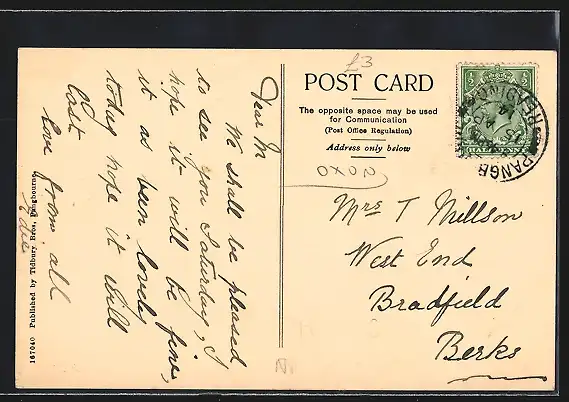 Dear M
We shall be pleased
to see you Saturday, I
hope it will be fine,
it as been lovely
today hope it will
last
love from all
Edie
167040 Published by Tidbury Bros, Pangbourne
£3
POST CARD
The opposite space may be used
for Communication
(Post Office Regulation)
Address only below
20x0
Mrs T Millson
West End
Bradfield
Berks
½ ½
HALFPENNY
PANGB
READING